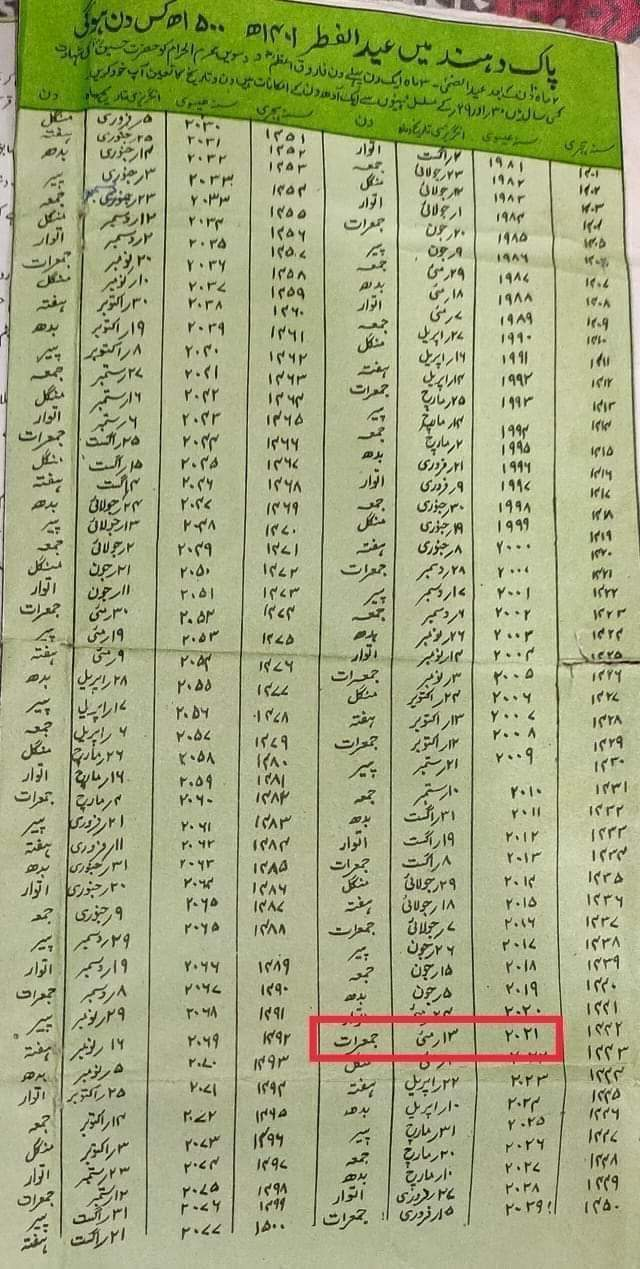 پاک و ہند میں عید الفطر ۱۴۰۱ھ ۱۵۰۰ھ کس دن ہوگی
۲ ماہ ۱۰ دن کے بعد عید الضحیٰ - ۳ ماہ ایک دن پہلے یوم فاروق اعظم و دسویں محرم الحرام کو حضرت حسین کی شہادت
کسی سال میں ۳۰ اور ۲۹ کے مسلسل مہینوں سے ایک آدھ دن کے امکانات ہیں دن و تاریخ کا تعین آپ خود کریں
سنہ ہجری سنہ عیسوی انگریزی تاریخ و ماہ دن
۱۴۰۱ ۱۹۸۱ ۲ اگست اتوار
۱۴۰۲ ۱۹۸۲ ۲۳ جولائی جمعہ
۱۴۰۳ ۱۹۸۳ ۱۲ جولائی منگل
۱۴۰۴ ۱۹۸۴ ۱ جولائی اتوار
۱۴۰۵ ۱۹۸۵ ۲۰ جون جمعرات
۱۴۰۶ ۱۹۸۶ ۹ جون پیر
۱۴۰۷ ۱۹۸۷ ۲۹ مئی جمعہ
۱۴۰۸ ۱۹۸۸ ۱۸ مئی بدھ
۱۴۰۹ ۱۹۸۹ ۷ مئی اتوار
۱۴۱۰ ۱۹۹۰ ۲۷ اپریل جمعہ
۱۴۱۱ ۱۹۹۱ ۱۶ اپریل منگل
۱۴۱۲ ۱۹۹۲ ۴ اپریل ہفتہ
۱۴۱۳ ۱۹۹۳ ۲۵ مارچ جمعرات
۱۴۱۴ ۱۹۹۴ ۱۴ مارچ پیر
۱۴۱۵ ۱۹۹۵ ۲ مارچ جمعہ
۱۴۱۶ ۱۹۹۶ ۲۱ فروری بدھ
۱۴۱۷ ۱۹۹۷ ۹ فروری اتوار
۱۴۱۸ ۱۹۹۸ ۳۰ جنوری جمعہ
۱۴۱۹ ۱۹۹۹ ۱۹ جنوری منگل
۱۴۲۰ ۲۰۰۰ ۸ جنوری ہفتہ
۱۴۲۱ ۲۰۰۰ ۲۸ دسمبر جمعرات
۱۴۲۲ ۲۰۰۱ ۱۷ دسمبر پیر
۱۴۲۳ ۲۰۰۲ ۶ دسمبر جمعہ
۱۴۲۴ ۲۰۰۳ ۲۶ نومبر بدھ
۱۴۲۵ ۲۰۰۴ ۱۴ نومبر اتوار
۱۴۲۶ ۲۰۰۵ ۳ نومبر جمعرات
۱۴۲۷ ۲۰۰۶ ۲۴ اکتوبر منگل
۱۴۲۸ ۲۰۰۷ ۱۳ اکتوبر ہفتہ
۱۴۲۹ ۲۰۰۸ ۱۲ اکتوبر جمعرات
۱۴۳۰ ۲۰۰۹ ۲۱ ستمبر پیر
۱۴۳۱ ۲۰۱۰ ۱۰ ستمبر جمعہ
۱۴۳۲ ۲۰۱۱ ۳۱ اگست بدھ
۱۴۳۳ ۲۰۱۲ ۱۹ اگست اتوار
۱۴۳۴ ۲۰۱۳ ۸ اگست جمعرات
۱۴۳۵ ۲۰۱۴ ۲۹ جولائی منگل
۱۴۳۶ ۲۰۱۵ ۱۸ جولائی ہفتہ
۱۴۳۷ ۲۰۱۶ ۷ جولائی جمعرات
۱۴۳۸ ۲۰۱۷ ۲۶ جون پیر
۱۴۳۹ ۲۰۱۸ ۱۵ جون جمعہ
۱۴۴۰ ۲۰۱۹ ۵ جون بدھ
۱۴۴۱ ۲۰۲۰ اتوار
۱۴۴۲ ۲۰۲۱ ۱۳ مئی جمعرات
۱۴۴۳ ۲۰۲۲ منگل
۱۴۴۴ ۲۰۲۳ ۲۲ اپریل ہفتہ
۱۴۴۵ ۲۰۲۴ ۱۰ اپریل بدھ
۱۴۴۶ ۲۰۲۵ ۳۱ مارچ پیر
۱۴۴۷ ۲۰۲۶ ۲۰ مارچ جمعہ
۱۴۴۸ ۲۰۲۷ ۱۰ مارچ بدھ
۱۴۴۹ ۲۰۲۸ ۲۷ فروری اتوار
۱۴۵۰ ۲۰۲۹ ۱۵ فروری جمعرات
سنہ ہجری سنہ عیسوی انگریزی تاریخ و ماہ دن
۱۴۵۱ ۲۰۳۰ ۵ فروری منگل
۱۴۵۲ ۲۰۳۱ ۲۵ جنوری ہفتہ
۱۴۵۳ ۲۰۳۲ ۱۴ جنوری بدھ
۱۴۵۴ ۲۰۳۳ ۳ جنوری پیر
۲۰۳۳ ۲۳ دسمبر جمعہ
۱۴۵۵ ۲۰۳۴ ۱۲ دسمبر منگل
۱۴۵۶ ۲۰۳۵ ۲ دسمبر اتوار
۱۴۵۷ ۲۰۳۶ ۲۰ نومبر جمعرات
۱۴۵۸ ۲۰۳۷ ۱۰ نومبر منگل
۱۴۵۹ ۲۰۳۸ ۳۰ اکتوبر ہفتہ
۱۴۶۰ ۲۰۳۹ ۱۹ اکتوبر بدھ
۱۴۶۱ ۲۰۴۰ ۸ اکتوبر پیر
۱۴۶۲ ۲۰۴۱ ۲۷ ستمبر جمعہ
۱۴۶۳ ۲۰۴۲ ۱۶ ستمبر منگل
۱۴۶۴ ۲۰۴۳ ۶ ستمبر اتوار
۱۴۶۵ ۲۰۴۴ ۲۵ اگست جمعرات
۱۴۶۶ ۲۰۴۵ ۱۵ اگست منگل
۱۴۶۷ ۲۰۴۶ ۴ اگست ہفتہ
۱۴۶۸ ۲۰۴۷ ۲۴ جولائی بدھ
۱۴۶۹ ۲۰۴۸ ۱۳ جولائی پیر
۱۴۷۰ ۲۰۴۹ ۲ جولائی جمعہ
۱۴۷۱ ۲۰۵۰ ۲۱ جون منگل
۱۴۷۲ ۲۰۵۱ ۱۱ جون اتوار
۱۴۷۳ ۲۰۵۲ ۳۰ مئی جمعرات
۱۴۷۴ ۲۰۵۳ ۱۹ مئی پیر
۱۴۷۵ ۲۰۵۴ ۹ مئی ہفتہ
۱۴۷۶ ۲۰۵۵ ۲۸ اپریل بدھ
۱۴۷۷ ۲۰۵۶ ۱۷ اپریل پیر
۱۴۷۸ ۲۰۵۷ ۶ اپریل جمعہ
۱۴۷۹ ۲۰۵۸ ۲۶ مارچ منگل
۱۴۸۰ ۲۰۵۹ ۱۶ مارچ اتوار
۱۴۸۱ ۲۰۶۰ ۴ مارچ جمعرات
۱۴۸۲ ۲۰۶۱ ۲۱ فروری پیر
۱۴۸۳ ۲۰۶۲ ۱۱ فروری ہفتہ
۱۴۸۴ ۲۰۶۳ ۳۱ جنوری بدھ
۱۴۸۵ ۲۰۶۴ ۲۰ جنوری اتوار
۱۴۸۶ ۲۰۶۵ ۹ جنوری جمعہ
۱۴۸۷ ۲۰۶۵ ۲۹ دسمبر پیر
۱۴۸۸ ۲۰۶۶ ۱۹ دسمبر اتوار
۱۴۸۹ ۲۰۶۷ ۸ دسمبر جمعرات
۱۴۹۰ ۲۰۶۸ ۲۹ نومبر پیر
۱۴۹۱ ۲۰۶۹ ۱۶ نومبر ہفتہ
۱۴۹۲ ۲۰۷۰ ۵ نومبر بدھ
۱۴۹۳ ۲۰۷۱ ۲۵ اکتوبر اتوار
۱۴۹۴ ۲۰۷۲ ۱۴ اکتوبر جمعہ
۱۴۹۵ ۲۰۷۳ ۳ اکتوبر منگل
۱۴۹۶ ۲۰۷۴ ۲۳ ستمبر اتوار
۱۴۹۷ ۲۰۷۵ ۱۲ ستمبر جمعرات
۱۴۹۸ ۲۰۷۶ ۳۱ اگست پیر
۱۴۹۹ ۲۰۷۷ ۲۱ اگست ہفتہ
۱۵۰۰